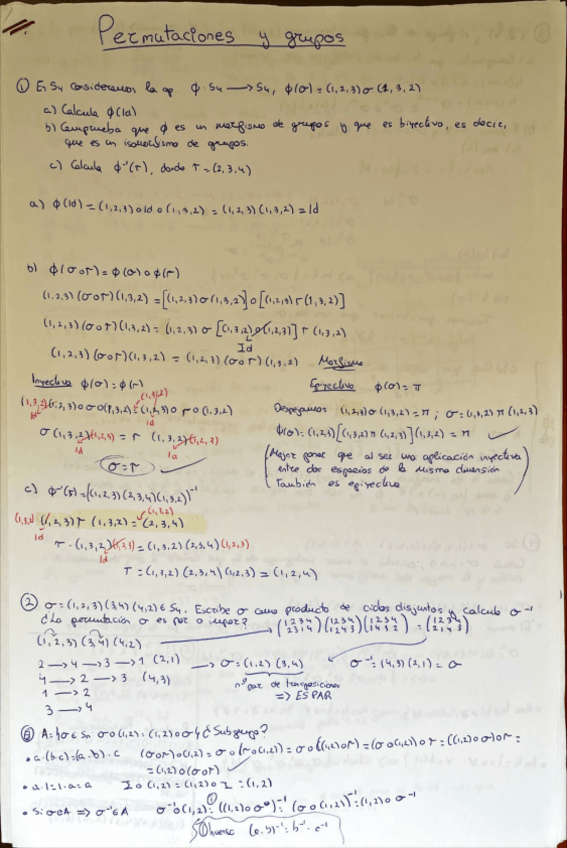 Permutaciones y grupos
① En S₄ consideramos la ap φ: S₄ → S₄, φ(σ) = (1,2,3) σ (1,3,2)
a) Calcula φ(Id)
b) Comprueba que φ es un morfismo de grupos y que es biyectivo, es decir,
que es un isomorfismo de grupos.
c) Calcula φ⁻¹(τ), donde τ = (2,3,4)
a) φ(Id) = (1,2,3) o Id o (1,3,2) = (1,2,3)(1,3,2) = Id
b) φ(σoτ) = φ(σ) o φ(τ)
(1,2,3)(σoτ)(1,3,2) = [(1,2,3)σ(1,3,2)] o [(1,2,3)τ(1,3,2)]
(1,2,3)(σoτ)(1,3,2) = (1,2,3) σ [(1,3,2)o(1,2,3)] τ (1,3,2)
Id
(1,2,3)(σoτ)(1,3,2) = (1,2,3)(σoτ)(1,3,2) Morfismo
Inyectiva φ(σ) = φ(τ)
(1,3,2)
(1,3,2)(1,2,3)oσo(1,3,2) = (1,2,3)o τ o(1,3,2)
Id Id
σ(1,3,2)(1,2,3) = τ (1,3,2)(1,2,3)
Id Id
σ=τ ✓
Epiyectiva φ(σ) = π
Despejamos (1,2,3)σ(1,3,2) = π ; σ = (1,3,2)π(1,2,3)
φ(σ) = (1,2,3)[(1,3,2)π(1,2,3)](1,3,2) = π ✓
(Mejor poner que al ser una aplicación inyectiva
entre dos espacios de la misma dimensión
también es epiyectiva)
c) φ⁻¹(τ) = ((1,2,3)(2,3,4)(1,3,2))⁻¹
(1,3,2)
(1,3,2) (1,2,3) τ (1,3,2) = (2,3,4)
Id
τ · (1,3,2)(1,2,3) = (1,3,2)(2,3,4)(1,2,3)
Id
τ = (1,3,2)(2,3,4)(1,2,3) = (1,2,4)
② σ = (1,2,3)(3,4)(4,2) ∈ S₄. Escribe σ como producto de ciclos disjuntos y calcula σ⁻¹
¿La permutación σ es par o impar?
(1 2 3 4 / 2 3 1 4)(1 2 3 4 / 1 2 4 3)(1 2 3 4 / 1 4 3 2) = (1 2 3 4 / 2 1 4 3)
(1,2,3)(3,4)(4,2)
2 → 4 → 3 → 1 (2,1)
4 → 2 → 3 (4,3)
1 → 2
3 → 4
→ σ = (1,2)(3,4) σ⁻¹ = (4,3)(2,1) = σ
nº par de trasposiciones
=> ES PAR
③ A = {σ ∈ Sn σo(1,2) = (1,2)oσ} ¿Subgrupo?
• a·(b·c) = (a·b)·c (σoτ)o(1,2) = σo(τo(1,2)) = σo((1,2)oτ) = (σo(1,2))oτ = ((1,2)oσ)oτ =
= (1,2)o(σoτ) ✓
• a·1 = 1·a = a Io(1,2) = (1,2)oI = (1,2)
• Si σ∈A => σ⁻¹∈A σ⁻¹o(1,2) = ((1,2)oσ)⁻¹ = (σo(1,2))⁻¹ = (1,2)oσ⁻¹
① Inverso (a·b)⁻¹ = b⁻¹·a⁻¹